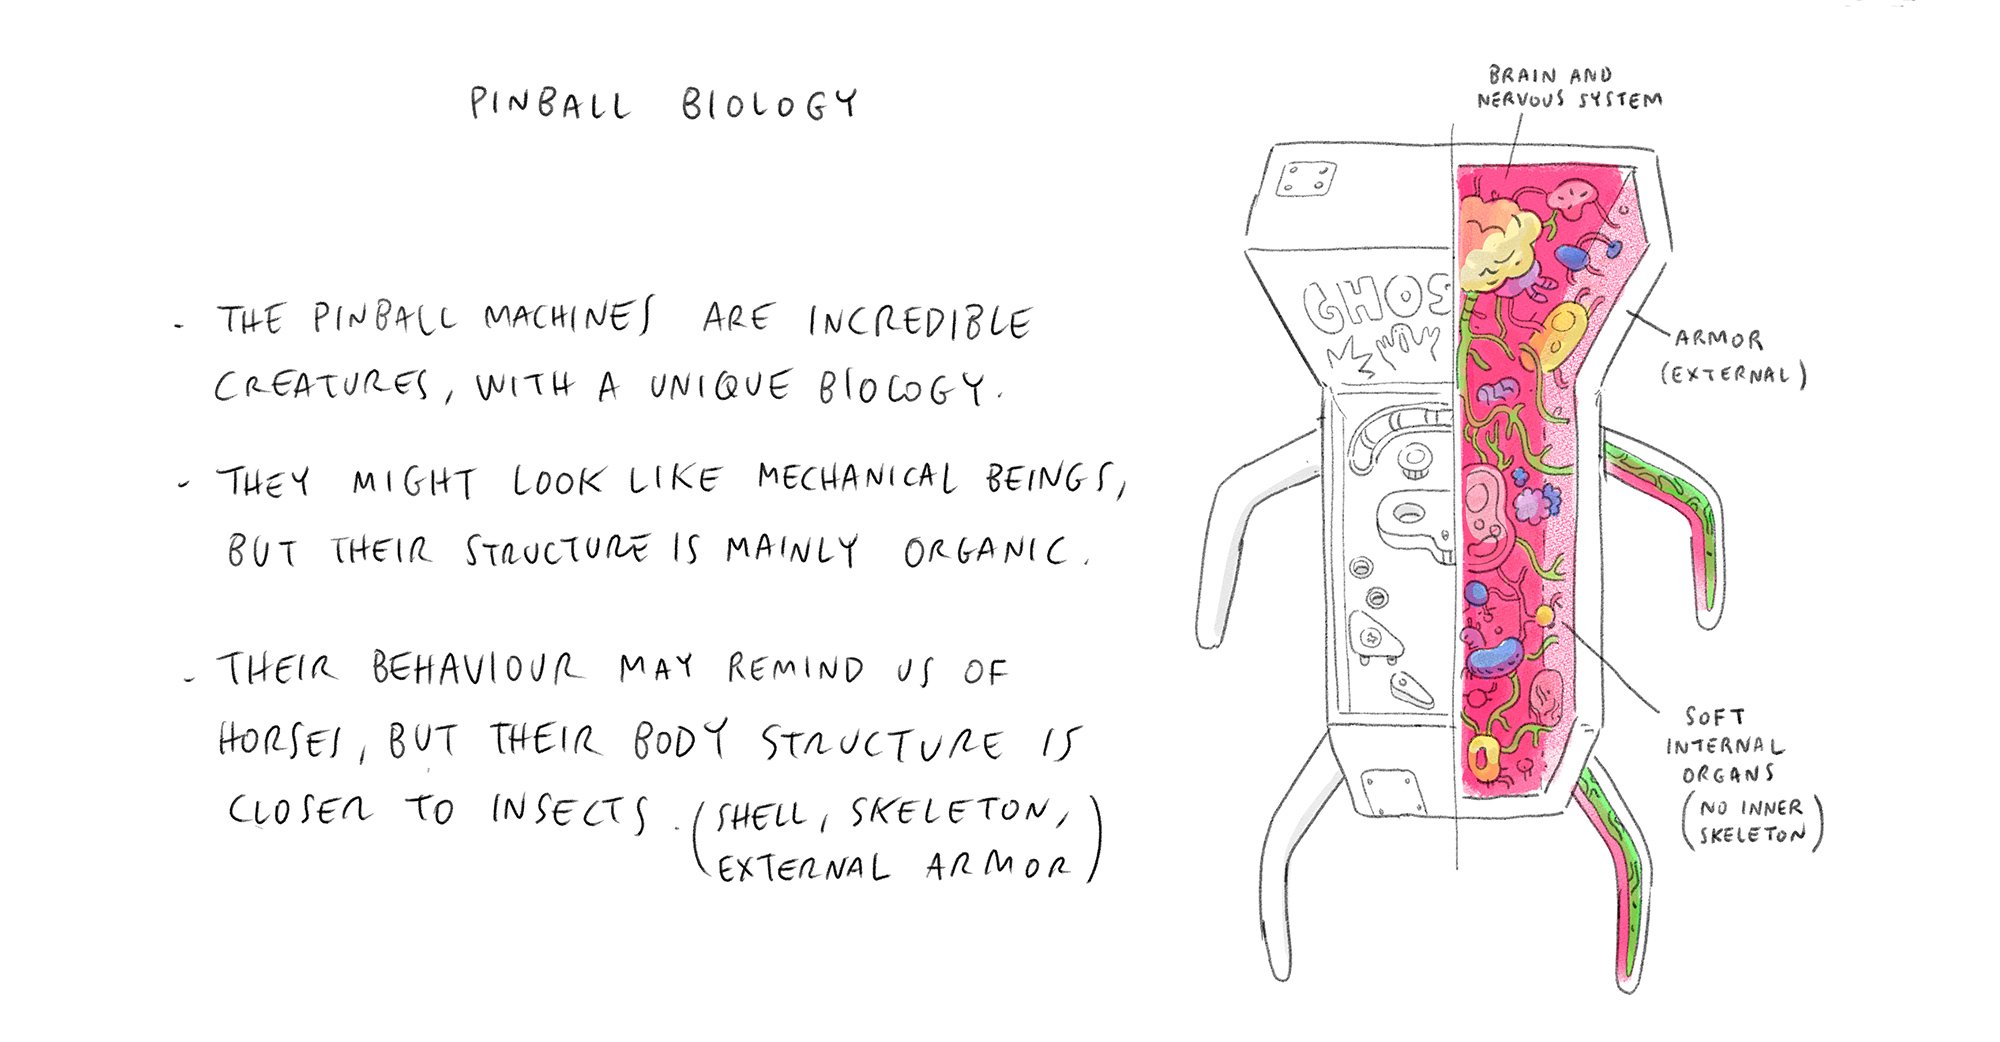 PINBALL BIOLOGY
- THE PINBALL MACHINES ARE INCREDIBLE
CREATURES, WITH A UNIQUE BIOLOGY.
- THEY MIGHT LOOK LIKE MECHANICAL BEINGS,
BUT THEIR STRUCTURE IS MAINLY ORGANIC.
- THEIR BEHAVIOUR MAY REMIND US OF
HORSES, BUT THEIR BODY STRUCTURE IS
CLOSER TO INSECTS. (SHELL, SKELETON,
EXTERNAL ARMOR)
BRAIN AND
NERVOUS SYSTEM
GHOS
ARMOR
(EXTERNAL)
SOFT
INTERNAL
ORGANS
(NO INNER
SKELETON)